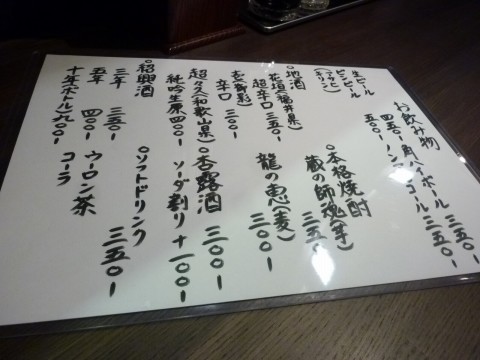 お飲み物
生ビール 四五〇-
ビンビール 五〇〇-
(アサヒ
キリン)
角ハイボール 三五〇-
ノンアルコール 三五〇-
○地酒
花垣(福井県)
超辛口 三五〇-
辛口 三〇〇-
超久(和歌山県)
純吟生原 四〇〇-
○本格焼酎
蔵の師魂(芋) 三五〇-
龍の恵(麦) 三〇〇-
○杏露酒 三〇〇-
ソーダ割り+一〇〇-
○紹興酒
三年 三五〇-
五年 四〇〇-
十年ボトル 九〇〇-
○ソフトドリンク
ウーロン茶 三五〇-
コーラ